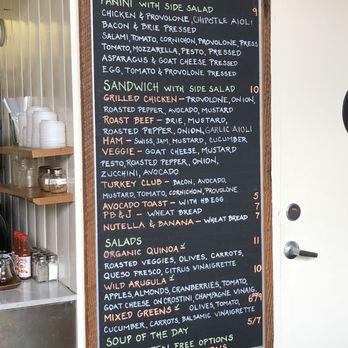 PANINI WITH SIDE SALAD 9
CHICKEN & PROVOLONE, CHIPOTLE AIOLI
BACON & BRIE PRESSED
SALAMI, TOMATO, CORNICHON, PROVOLONE, PRESS
TOMATO, MOZZARELLA, PESTO, PRESSED
ASPARAGUS & GOAT CHEESE PRESSED
EGG, TOMATO & PROVOLONE PRESSED
SANDWICH WITH SIDE SALAD 10
GRILLED CHICKEN - PROVOLONE, ONION,
ROASTED PEPPER, AVOCADO, MUSTARD
ROAST BEEF - BRIE, MUSTARD,
ROASTED PEPPER, ONION, GARLIC AIOLI
HAM - SWISS, JAM, MUSTARD, CUCUMBER
VEGGIE - GOAT CHEESE, MUSTARD
PESTO, ROASTED PEPPER, ONION,
ZUCCHINI, AVOCADO
TURKEY CLUB - BACON, AVOCADO,
MUSTARD, TOMATO, CORNICHON, PROVOLONE
AVOCADO TOAST - WITH HB EGG 5
PB & J - WHEAT BREAD 7
NUTELLA & BANANA - WHEAT BREAD 7
SALADS
ORGANIC QUINOA 11
ROASTED VEGGIES, OLIVES, CARROTS,
QUESO FRESCO, CITRUS VINAIGRETTE
WILD ARUGULA 10
APPLES, ALMONDS, CRANBERRIES, TOMATO,
GOAT CHEESE ON CROSTINI, CHAMPAGNE VINAIG.
MIXED GREENS OLIVES, TOMATO,
CUCUMBER, CARROTS, BALSAMIC VINAIGRETTE
SOUP OF THE DAY 5/7
FREE OPTIONS